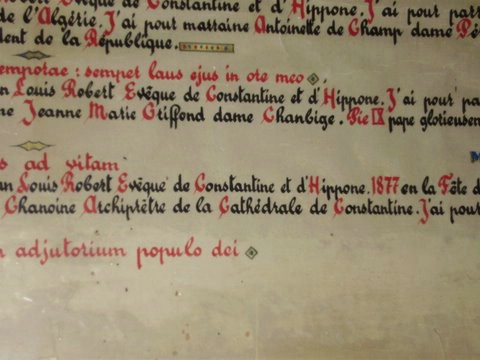 Robert Evêque de Constantine et d'Hippone. J'ai pour par
de l'Algérie. J'ai pour marraine Antoinette de Champ dame Pé
dent de la République.
empotae : semper laus ejus in ore meo
n Louis Robert Evêque de Constantine et d'Hippone. J'ai pour pa
ne Jeanne Marie Griffond dame Chanbige. Pie IX pape glorieusem
s ad vitam
an Louis Robert Evêque de Constantine et d'Hippone. 1877 en la Fête d
Chanoine Archiprêtre de la Cathédrale de Constantine. J'ai pour
n adjutorium populo dei